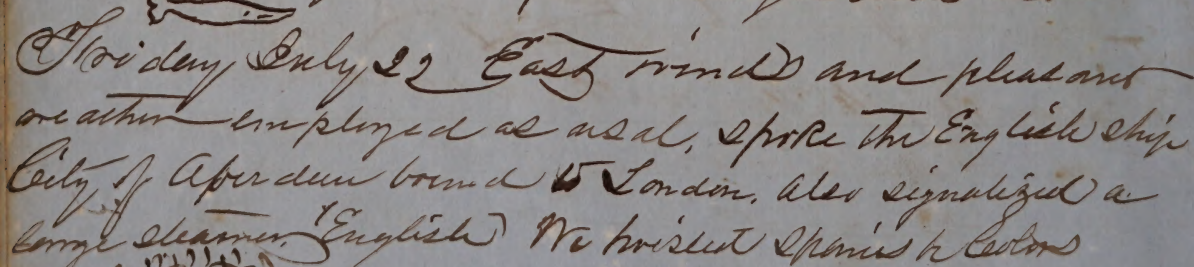 Friday July 22 East wind and pleasant
weather employed as usal, spoke the English ship
City of Aberdeen bound to London, also signalized a
large steamer (English) We hoisted Spanish Colors